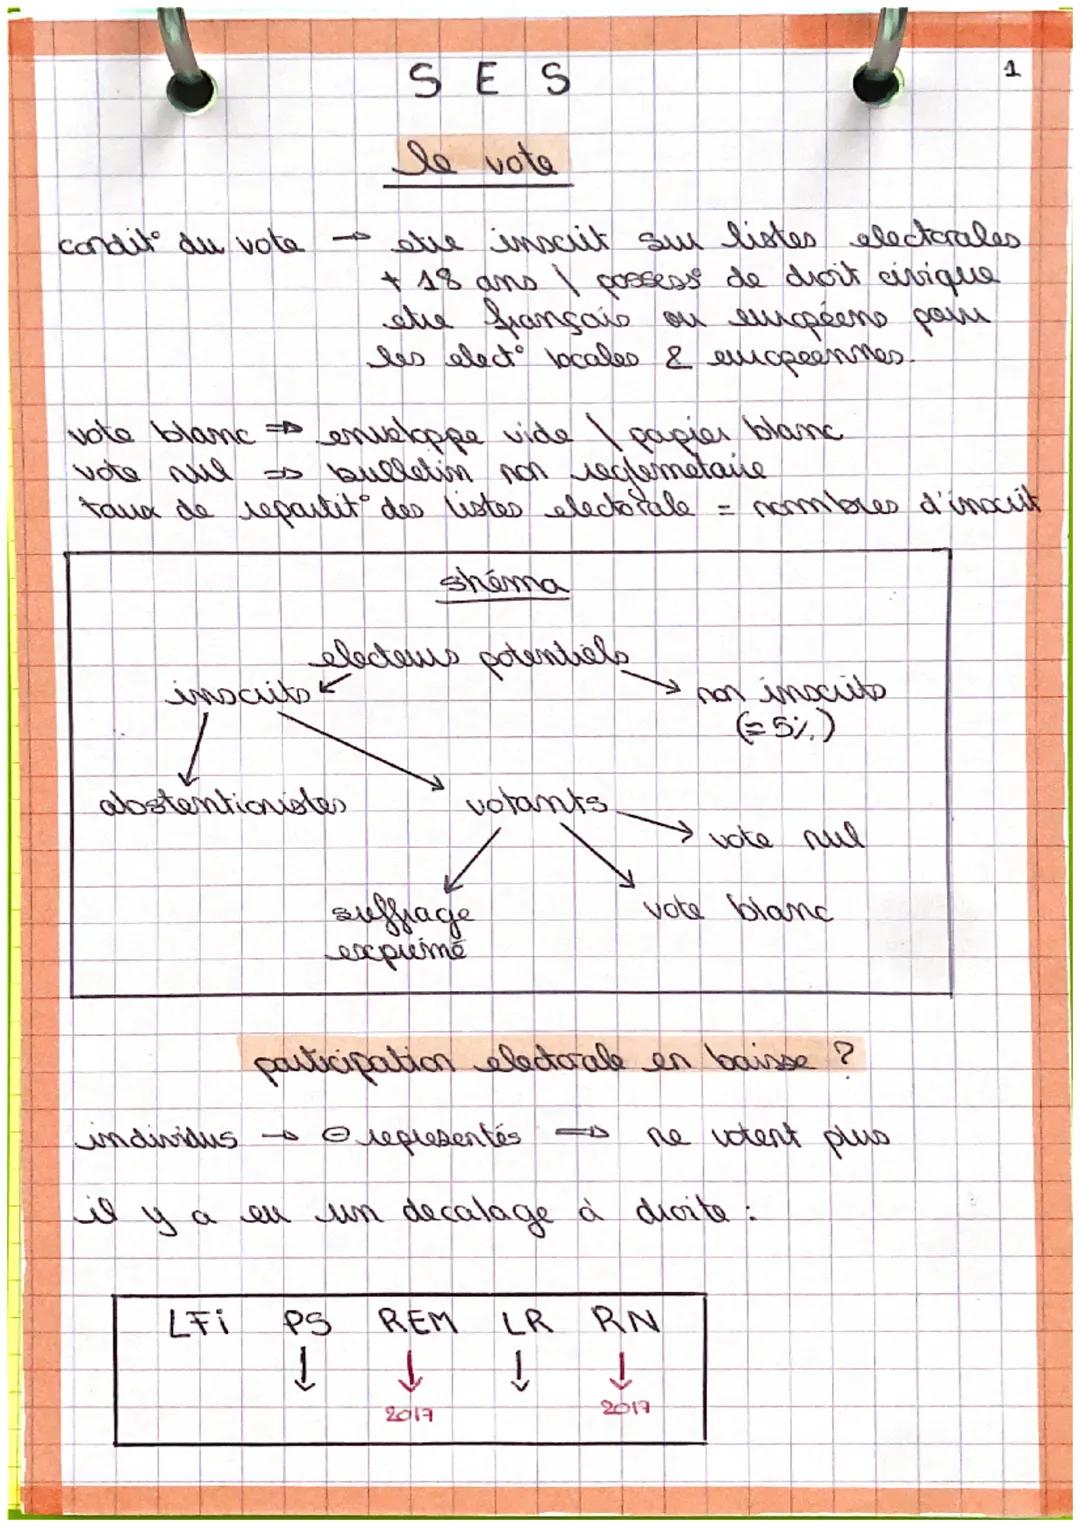 S E S
1
le vote
condit° du vote → etre inscrit sur listes electorales
+ 18 ans \ possess° de droit civique
etre français ou européens pour
les elect° locales & europeennes.
vote blanc => enveloppe vide \ papier blanc
vote nul => bulletin non reglemetaire
taux de repartit° des listes electorale = nombres d'inscrit
shéma
electeurs potentiels
inscrits
non inscrits
(= 5%)
abstentionistes
votants
vote nul
suffrage
exprimé
vote blanc
participation electorale en baisse ?
individus → ⊖ representés => ne votent plus
il y a eu un decalage à droite :
LFi PS REM LR RN
↓ ↓ ↓ ↓
2017 2017